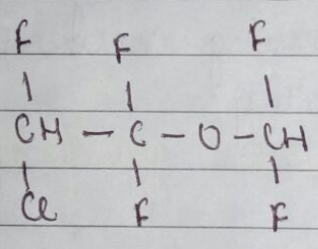 F F F
CH - C - O - CH
Cl F F